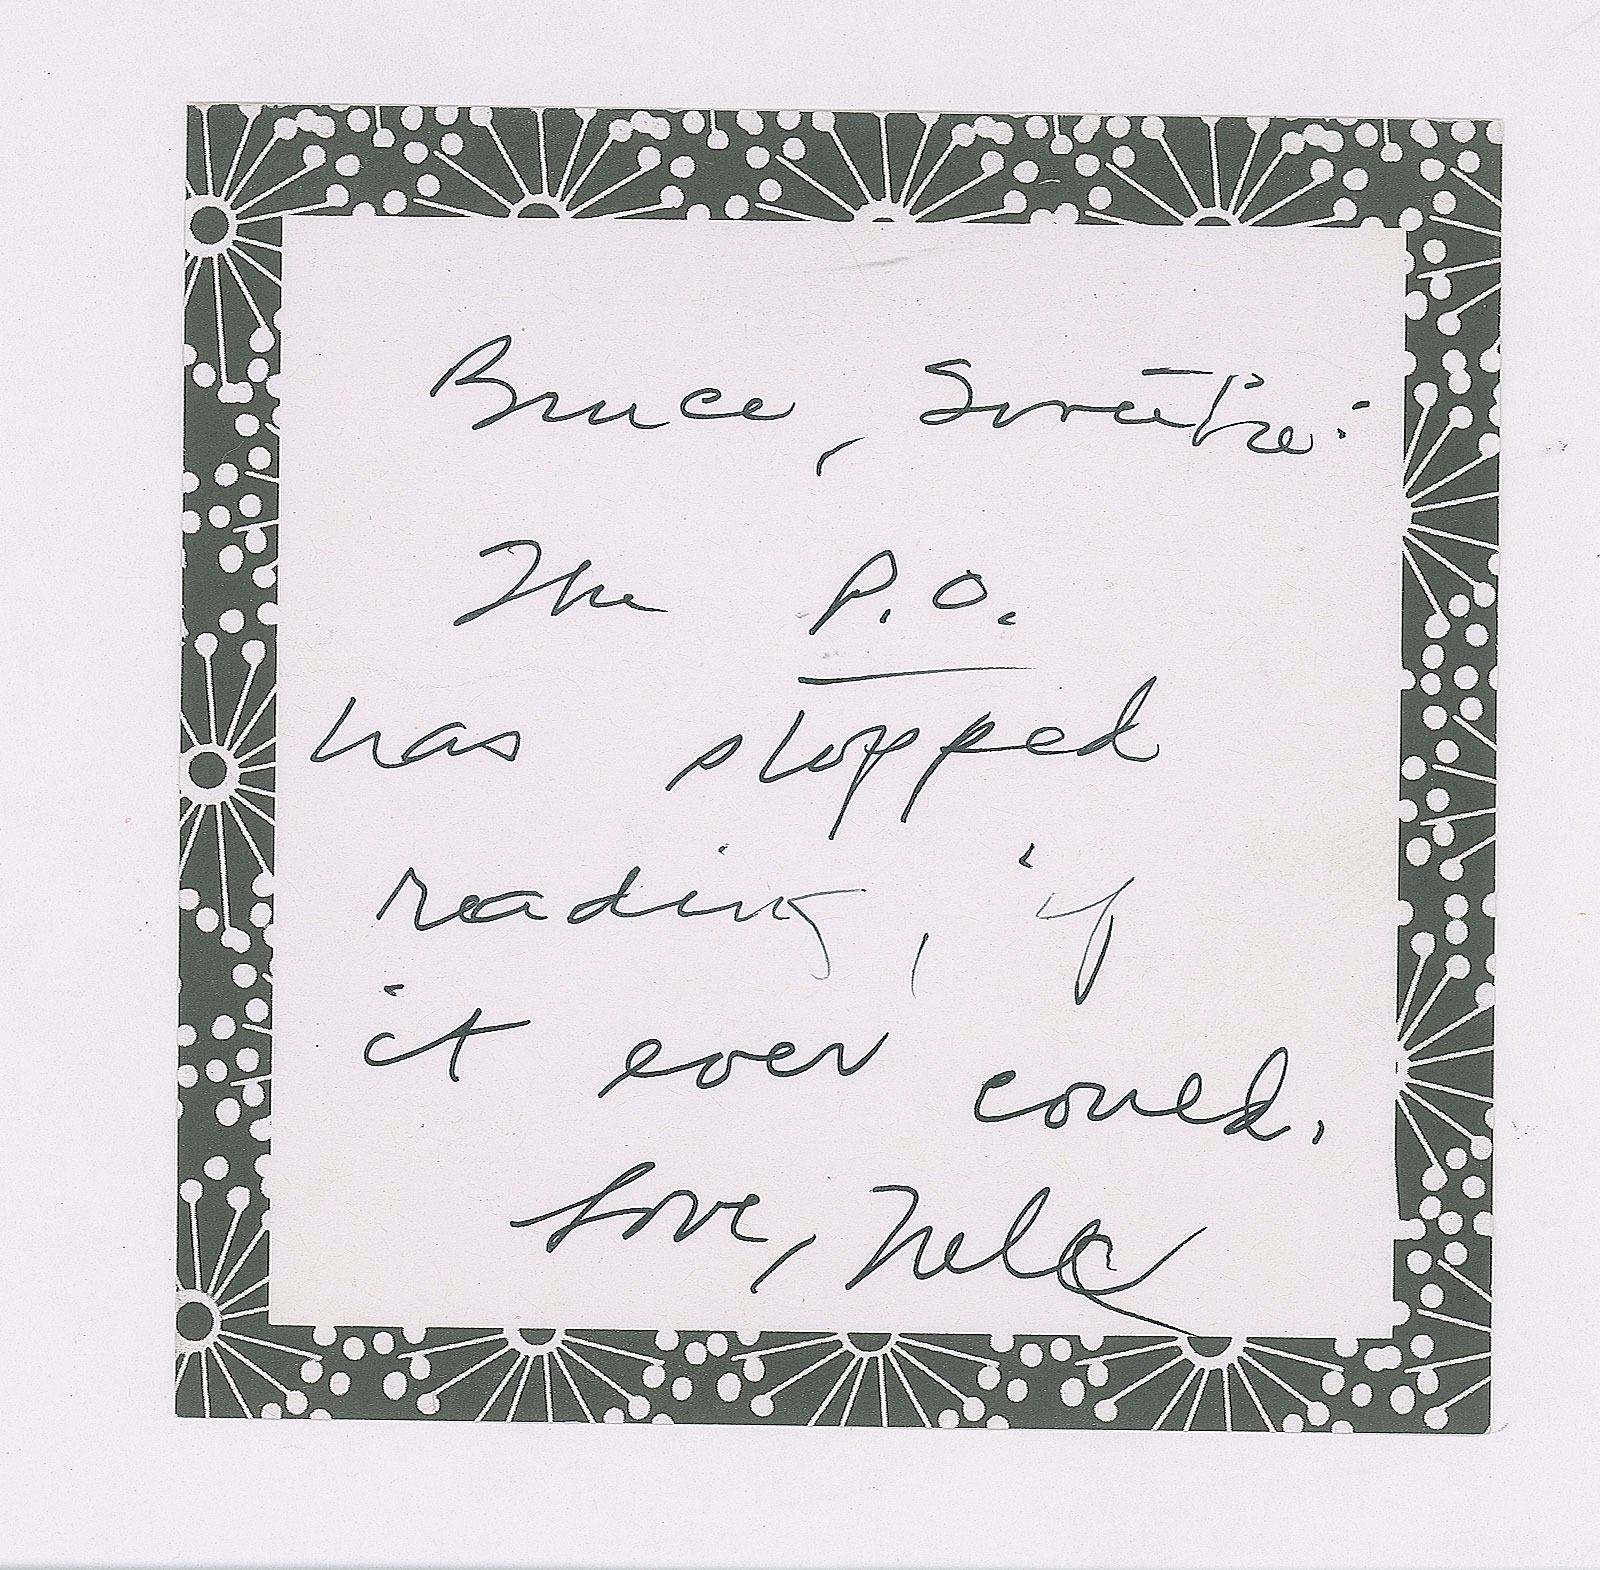 Bruce, Sweetie:
The P.O.
has stopped
reading, if
it ever could.
Love, Nelle